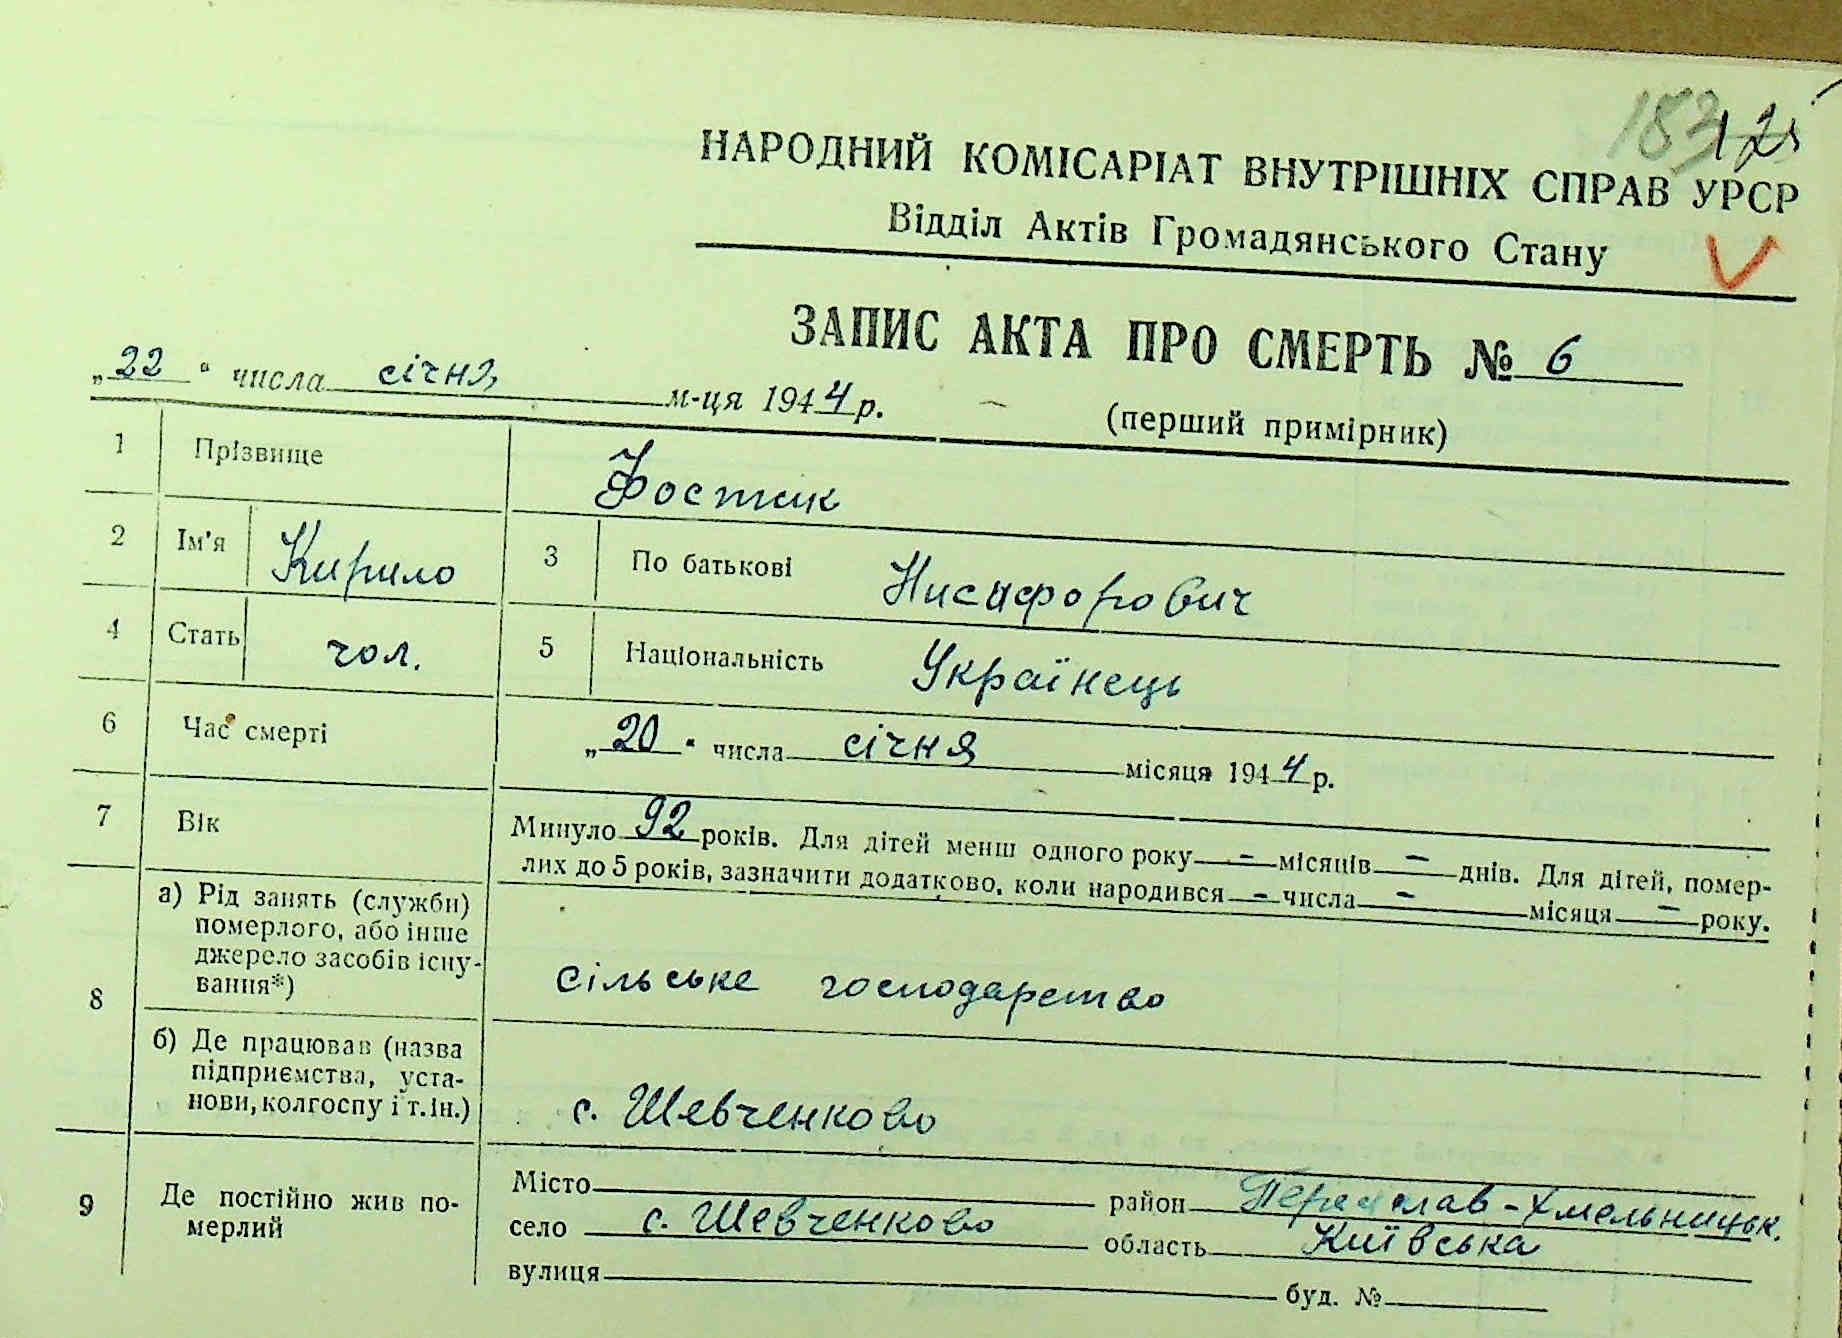 183 125
НАРОДНИЙ КОМІСАРІАТ ВНУТРІШНІХ СПРАВ УРСР
Відділ Актів Громадянського Стану
ЗАПИС АКТА ПРО СМЕРТЬ № 6
„22“ числа січня м-ця 1944 р.
(перший примірник)
1 Прізвище Фостик
2 Ім'я Кирило 3 По батькові Нисифорович
4 Стать чол. 5 Національність Українець
6 Час смерті „20“ числа січня місяця 1944 р.
7 Вік Минуло 92 років. Для дітей менш одного року – місяців – днів. Для дітей, помер-
лих до 5 років, зазначити додатково, коли народився – числа – місяця – року.
8 а) Рід занять (служби)
померлого, або інше
джерело засобів існу-
вання*)
сільське господарство
б) Де працював (назва
підприємства, уста-
нови, колгоспу і т. ін.)
с. Шевченково
9 Де постійно жив по-
мерлий
Місто район Переяслав-Хмельницьк.
село с. Шевченково область Київська
вулиця буд. №